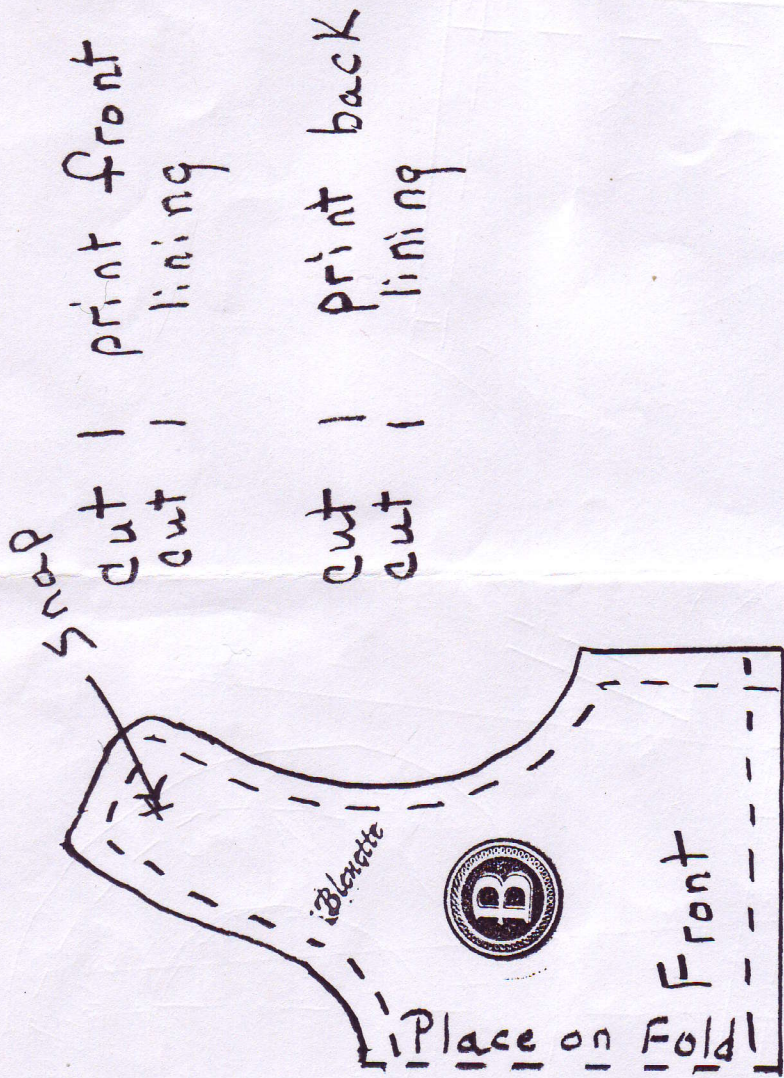 snap
cut 1 print front
cut 1 lining
cut 1 print back
cut 1 lining
Bleuette
B
Front
Place on Fold